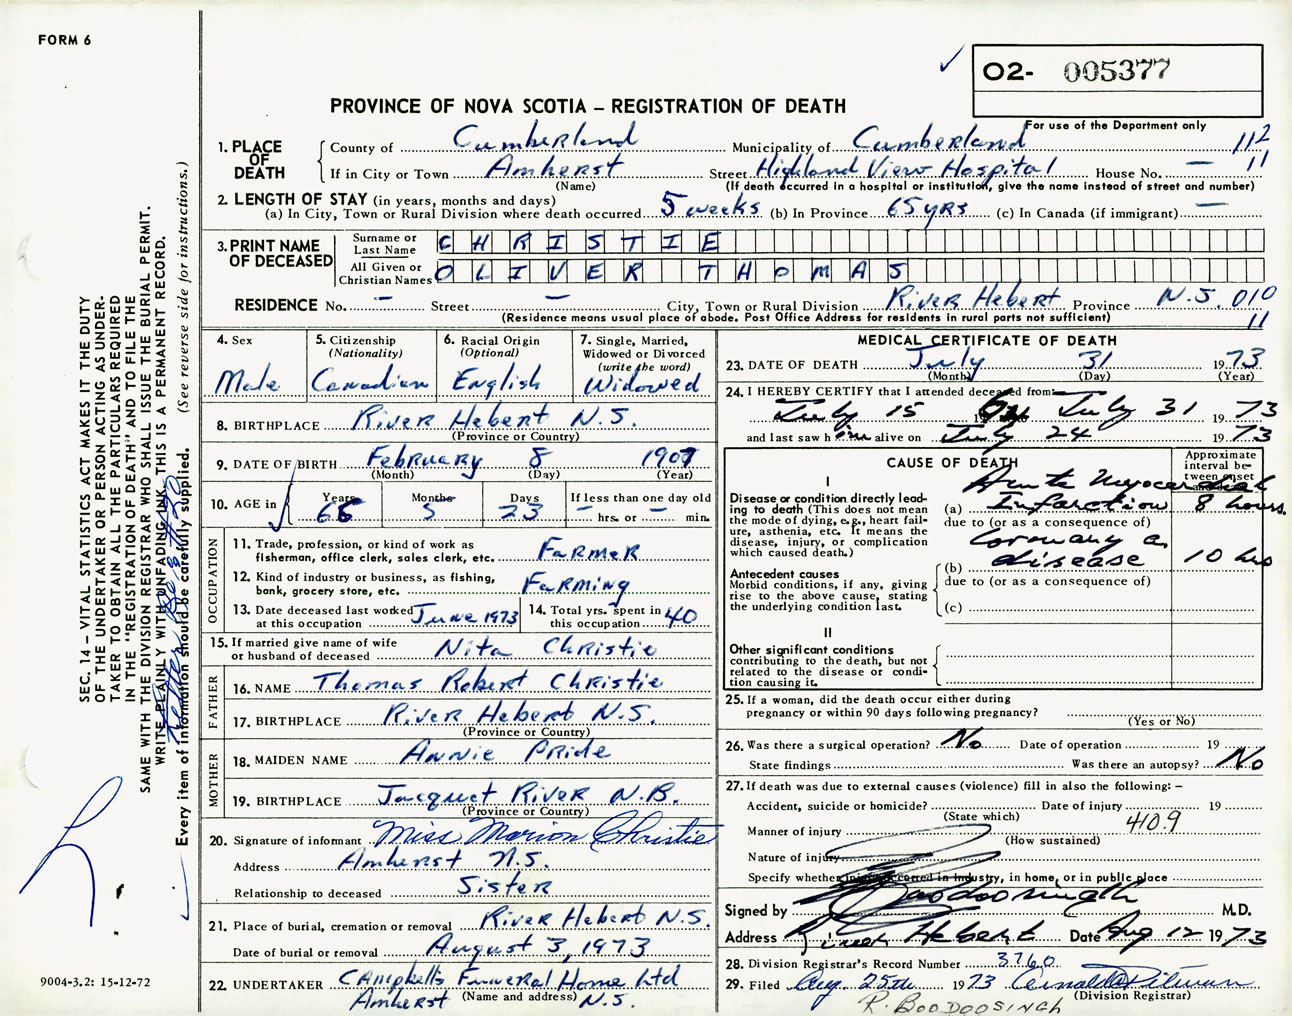 FORM 6
✓
O2- 005377
PROVINCE OF NOVA SCOTIA – REGISTRATION OF DEATH
For use of the Department only
1. PLACE OF DEATH
County of Cumberland Municipality of Cumberland 112
If in City or Town Amherst Street Highland View Hospital House No. — 11
(Name) (If death occurred in a hospital or institution, give the name instead of street and number)
2. LENGTH OF STAY (in years, months and days)
(a) In City, Town or Rural Division where death occurred 5 weeks (b) In Province 65 yrs (c) In Canada (if immigrant) —
3. PRINT NAME OF DECEASED
Surname or Last Name CHRISTIE
All Given or Christian Names OLIVER THOMAS
RESIDENCE No. — Street — City, Town or Rural Division River Hebert Province N.S. 010
(Residence means usual place of abode. Post Office Address for residents in rural parts not sufficient) 11
4. Sex
Male
5. Citizenship
(Nationality)
Canadian
6. Racial Origin
(Optional)
English
7. Single, Married,
Widowed or Divorced
(write the word)
Widowed
8. BIRTHPLACE River Hebert N.S.
(Province or Country)
9. DATE OF BIRTH February 8 1907
(Month) (Day) (Year)
10. AGE in
Years Months Days If less than one day old
5 23 — hrs. or — min.
OCCUPATION
11. Trade, profession, or kind of work as
fisherman, office clerk, sales clerk, etc. Farmer
12. Kind of industry or business, as fishing,
bank, grocery store, etc. Farming
13. Date deceased last worked
at this occupation June 1973
14. Total yrs. spent in
this occupation 40
15. If married give name of wife
or husband of deceased Nita Christie
FATHER
16. NAME Thomas Robert Christie
17. BIRTHPLACE River Hebert N.S.
(Province or Country)
MOTHER
18. MAIDEN NAME Annie Pride
19. BIRTHPLACE Jacquet River N.B.
(Province or Country)
20. Signature of informant Miss Marion Christie
Address Amherst N.S.
Relationship to deceased Sister
21. Place of burial, cremation or removal River Hebert N.S.
Date of burial or removal August 3, 1973
22. UNDERTAKER Campbell's Funeral Home Ltd
(Name and address)
Amherst N.S.
MEDICAL CERTIFICATE OF DEATH
23. DATE OF DEATH July 31 1973
(Month) (Day) (Year)
24. I HEREBY CERTIFY that I attended deceased from:
July 15 19 July 31 1973
and last saw him alive on July 24 1973
CAUSE OF DEATH
Approximate
interval be-
tween onset
I
Disease or condition directly lead-
ing to death (This does not mean
the mode of dying, e.g., heart fail-
ure, asthenia, etc. It means the
disease, injury, or complication
which caused death.)
Acute Myocardial
(a) Infarction 8 hours.
due to (or as a consequence of)
Coronary a
(b) disease 10 hrs
due to (or as a consequence of)
(c)
Antecedent causes
Morbid conditions, if any, giving
rise to the above cause, stating
the underlying condition last.
II
Other significant conditions
contributing to the death, but not
related to the disease or condi-
tion causing it.
25. If a woman, did the death occur either during
pregnancy or within 90 days following pregnancy?
(Yes or No)
26. Was there a surgical operation? No Date of operation 19
State findings Was there an autopsy? No
27. If death was due to external causes (violence) fill in also the following: –
Accident, suicide or homicide? Date of injury 19
(State which) 410.9
Manner of injury
(How sustained)
Nature of injury
Specify whether injury occurred in industry, in home, or in public place
Signed by Boodoosingh M.D.
Address River Hebert Date Aug 12 1973
28. Division Registrar's Record Number 3760
29. Filed Aug. 25th 1973 Pitman
(Division Registrar)
R. BOODOOSINGH
SEC. 14 – VITAL STATISTICS ACT MAKES IT THE DUTY
OF THE UNDERTAKER OR PERSON ACTING AS UNDER-
TAKER TO OBTAIN ALL THE PARTICULARS REQUIRED
IN THE "REGISTRATION OF DEATH" AND TO FILE THE
SAME WITH THE DIVISION REGISTRAR WHO SHALL ISSUE THE BURIAL PERMIT.
WRITE PLAINLY WITH UNFADING INK. THIS IS A PERMANENT RECORD.
Every item of information should be carefully supplied. (See reverse side for instructions.)
9004-3.2: 15-12-72